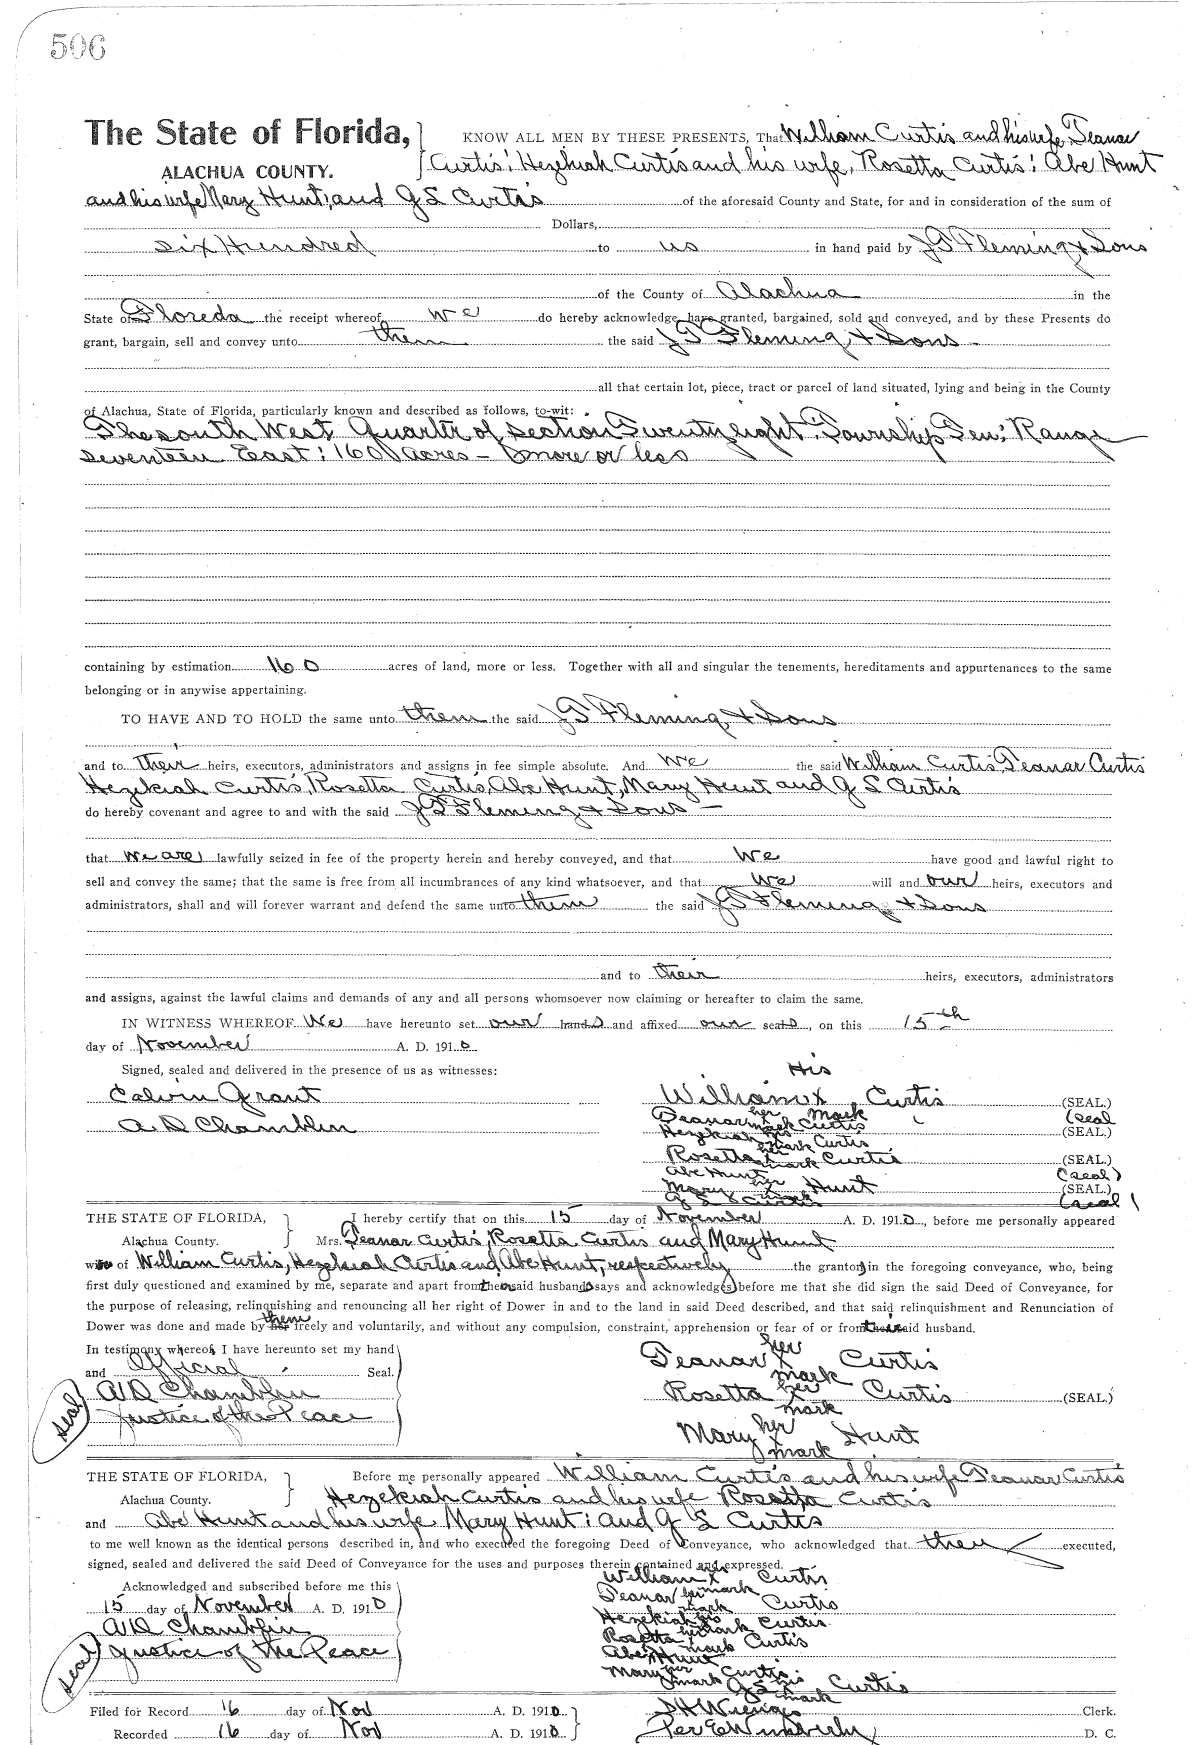 506
The State of Florida, KNOW ALL MEN BY THESE PRESENTS, That William Curtis and his wife, Teanar
ALACHUA COUNTY. Curtis; Hezekiah Curtis and his wife, Rosetta Curtis; Abe Hunt
and his wife Mary Hunt; and G S Curtis of the aforesaid County and State, for and in consideration of the sum of
Dollars,
six Hundred to us in hand paid by J T Fleming & Sons
of the County of Alachua in the
State of Floreda the receipt whereof we do hereby acknowledge, have granted, bargained, sold and conveyed, and by these Presents do
grant, bargain, sell and convey unto them the said J T Fleming & Sons -
all that certain lot, piece, tract or parcel of land situated, lying and being in the County
of Alachua, State of Florida, particularly known and described as follows, to-wit:
The south West Quarter of section Twenty eight; Township Ten; Range
seventeen East; 160 acres - more or less
containing by estimation 160 acres of land, more or less. Together with all and singular the tenements, hereditaments and appurtenances to the same
belonging or in anywise appertaining.
TO HAVE AND TO HOLD the same unto them the said J T Fleming & Sons
and to their heirs, executors, administrators and assigns in fee simple absolute. And we the said William Curtis Teanar Curtis
Hezekiah Curtis, Rosetta Curtis, Abe Hunt, Mary Hunt and G S Curtis
do hereby covenant and agree to and with the said J T Fleming & Sons -
that we are lawfully seized in fee of the property herein and hereby conveyed, and that we have good and lawful right to
sell and convey the same; that the same is free from all incumbrances of any kind whatsoever, and that we will and our heirs, executors and
administrators, shall and will forever warrant and defend the same unto them the said J T Fleming & Sons
and to their heirs, executors, administrators
and assigns, against the lawful claims and demands of any and all persons whomsoever now claiming or hereafter to claim the same.
IN WITNESS WHEREOF We have hereunto set our hands and affixed our seals, on this 15th
day of November A. D. 1910
Signed, sealed and delivered in the presence of us as witnesses: His
Calvin Grant William X Curtis (SEAL.)
her mark (seal
A D Chamblin Teanar mark Curtis (SEAL.)
Hezekiah his mark Curtis
Rosetta X mark Curtis (SEAL.)
Abe Hunt (seal)
Mary her Hunt (SEAL.)
G S Curtis (seal)
THE STATE OF FLORIDA, I hereby certify that on this 15 day of November A. D. 1910, before me personally appeared
Alachua County. Mrs. Teanar Curtis, Rosetta Curtis and Mary Hunt
wives of William Curtis, Hezekiah Curtis and Abe Hunt, respectively the grantors in the foregoing conveyance, who, being
first duly questioned and examined by me, separate and apart from their said husbands says and acknowledges before me that she did sign the said Deed of Conveyance, for
the purpose of releasing, relinquishing and renouncing all her right of Dower in and to the land in said Deed described, and that said relinquishment and Renunciation of
Dower was done and made by her them freely and voluntarily, and without any compulsion, constraint, apprehension or fear of or from their said husband.
In testimony whereof, I have hereunto set my hand her
and Official Seal. Teanar X Curtis
mark
A D Chamblin Rosetta her X Curtis (SEAL.)
seal Justice of the Peace mark
Mary her X mark Hunt
THE STATE OF FLORIDA, Before me personally appeared William Curtis and his wife Teanar Curtis
Alachua County. Hezekiah Curtis and his wife Rosetta Curtis
and Abe Hunt and his wife Mary Hunt; and G S Curtis
to me well known as the identical persons described in, and who executed the foregoing Deed of Conveyance, who acknowledged that they executed,
signed, sealed and delivered the said Deed of Conveyance for the uses and purposes therein contained and expressed.
William X Curtis
Acknowledged and subscribed before me this Teanar her mark Curtis
15 day of November A. D. 1910
A D Chamblin Hezekiah his mark Curtis
Rosetta her mark Curtis
seal Justice of the Peace Abe Hunt
Mary her mark
G S his mark Curtis
Filed for Record 16 day of Nov A. D. 1910 S H Wienges Clerk.
Recorded 16 day of Nov A. D. 1910 Per E Wimberly D. C.